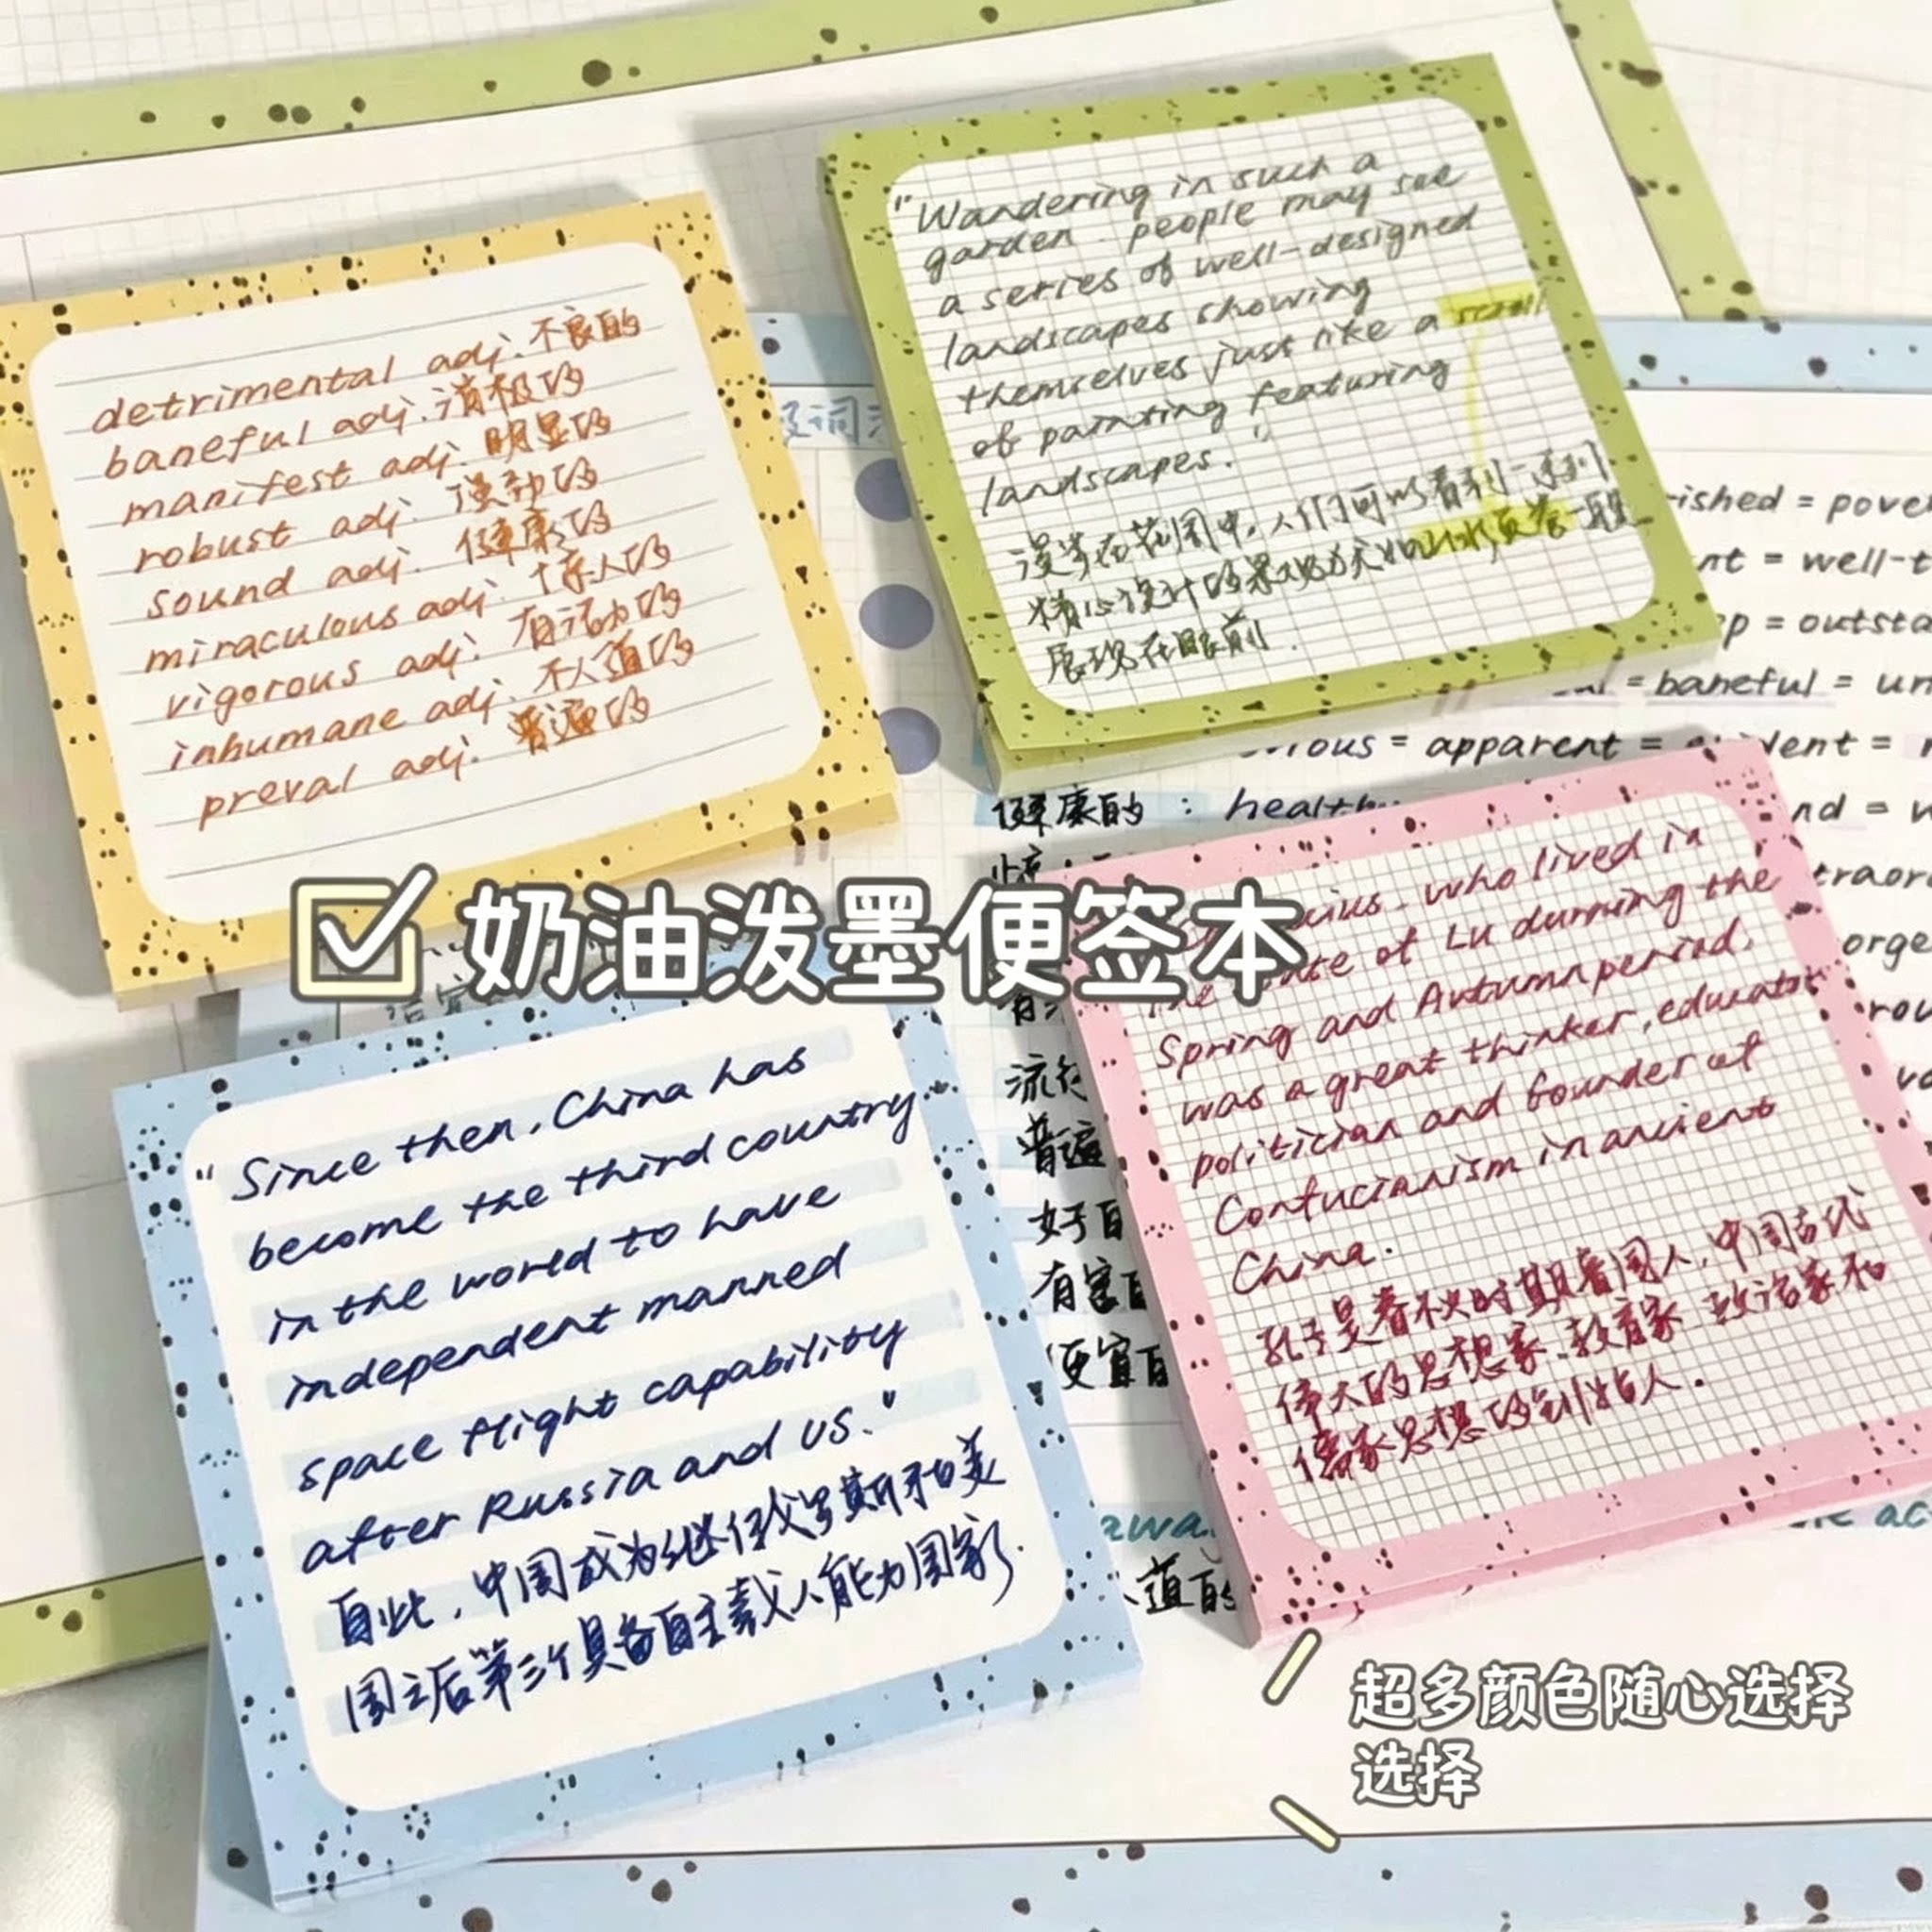 detrimental adj. 不良的
baneful adj. 消极的
manifest adj. 明显的
robust adj. 强劲的
sound adj. 健康的
miraculous adj. 惊人的
vigorous adj. 有活力的
inhumane adj. 不人道的
preval adj. 普遍的
"Wandering in such a
garden people may see
a series of well-designed
landscapes showing
themselves just like a scroll
of painting featuring
landscapes."
漫步在花园中,人们可以看到一系列
精心设计的景观如山水画卷一般
展现在眼前.
ished = pove
nt = well-t
p = outsta
= baneful = un
ious = apparent = dent =
健康的 : health
nd = w
traor
orge
rou
流行
普遍
好百
有害
便宜
奶油泼墨便签本
who lived in
of Lu durning the
Spring and Autumn period,
was a great thinker, educator
politician and founder of
Confucianism in ancient
China.
孔子是春秋时期鲁国人,中国古代
伟大的思想家、教育家、政治家和
儒家思想的创始人.
"Since then, China has
become the third country
in the world to have
independent manned
space flight capability
after Russia and US."
自此,中国成为继俄罗斯和美
国之后第三个具备自主载人能力国家.
道的
超多颜色随心选择
选择